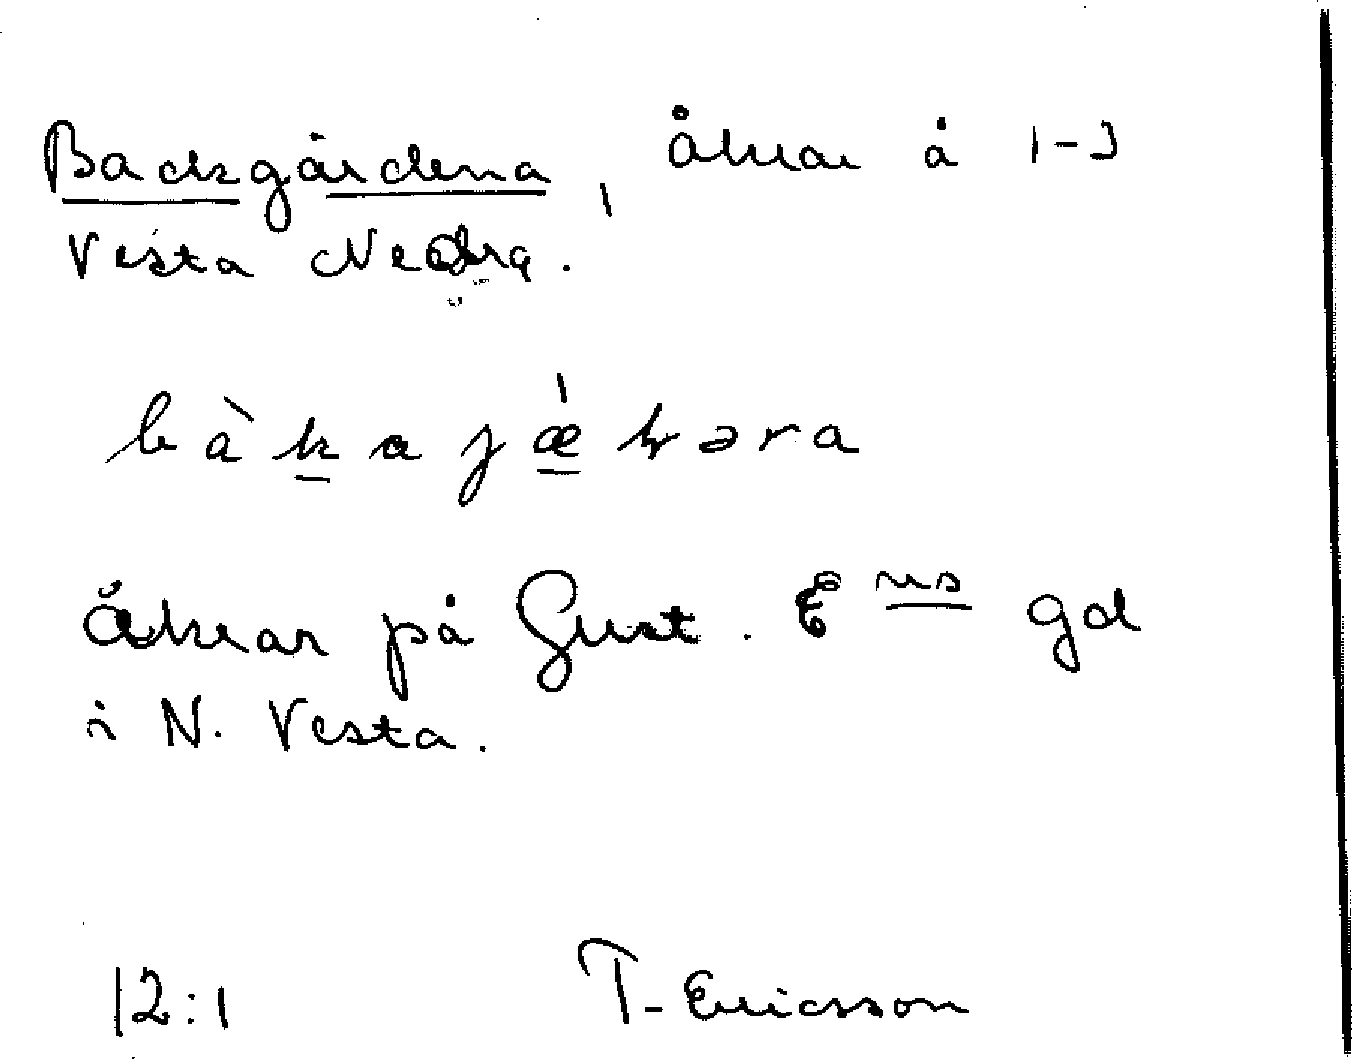 Backgårdena, åkrar å 1-3
Vesta Nedra.
bàkajǽkəra
Åkrar på Gust. E ns gd
i N. Vesta.
12:1 T. Ericsson